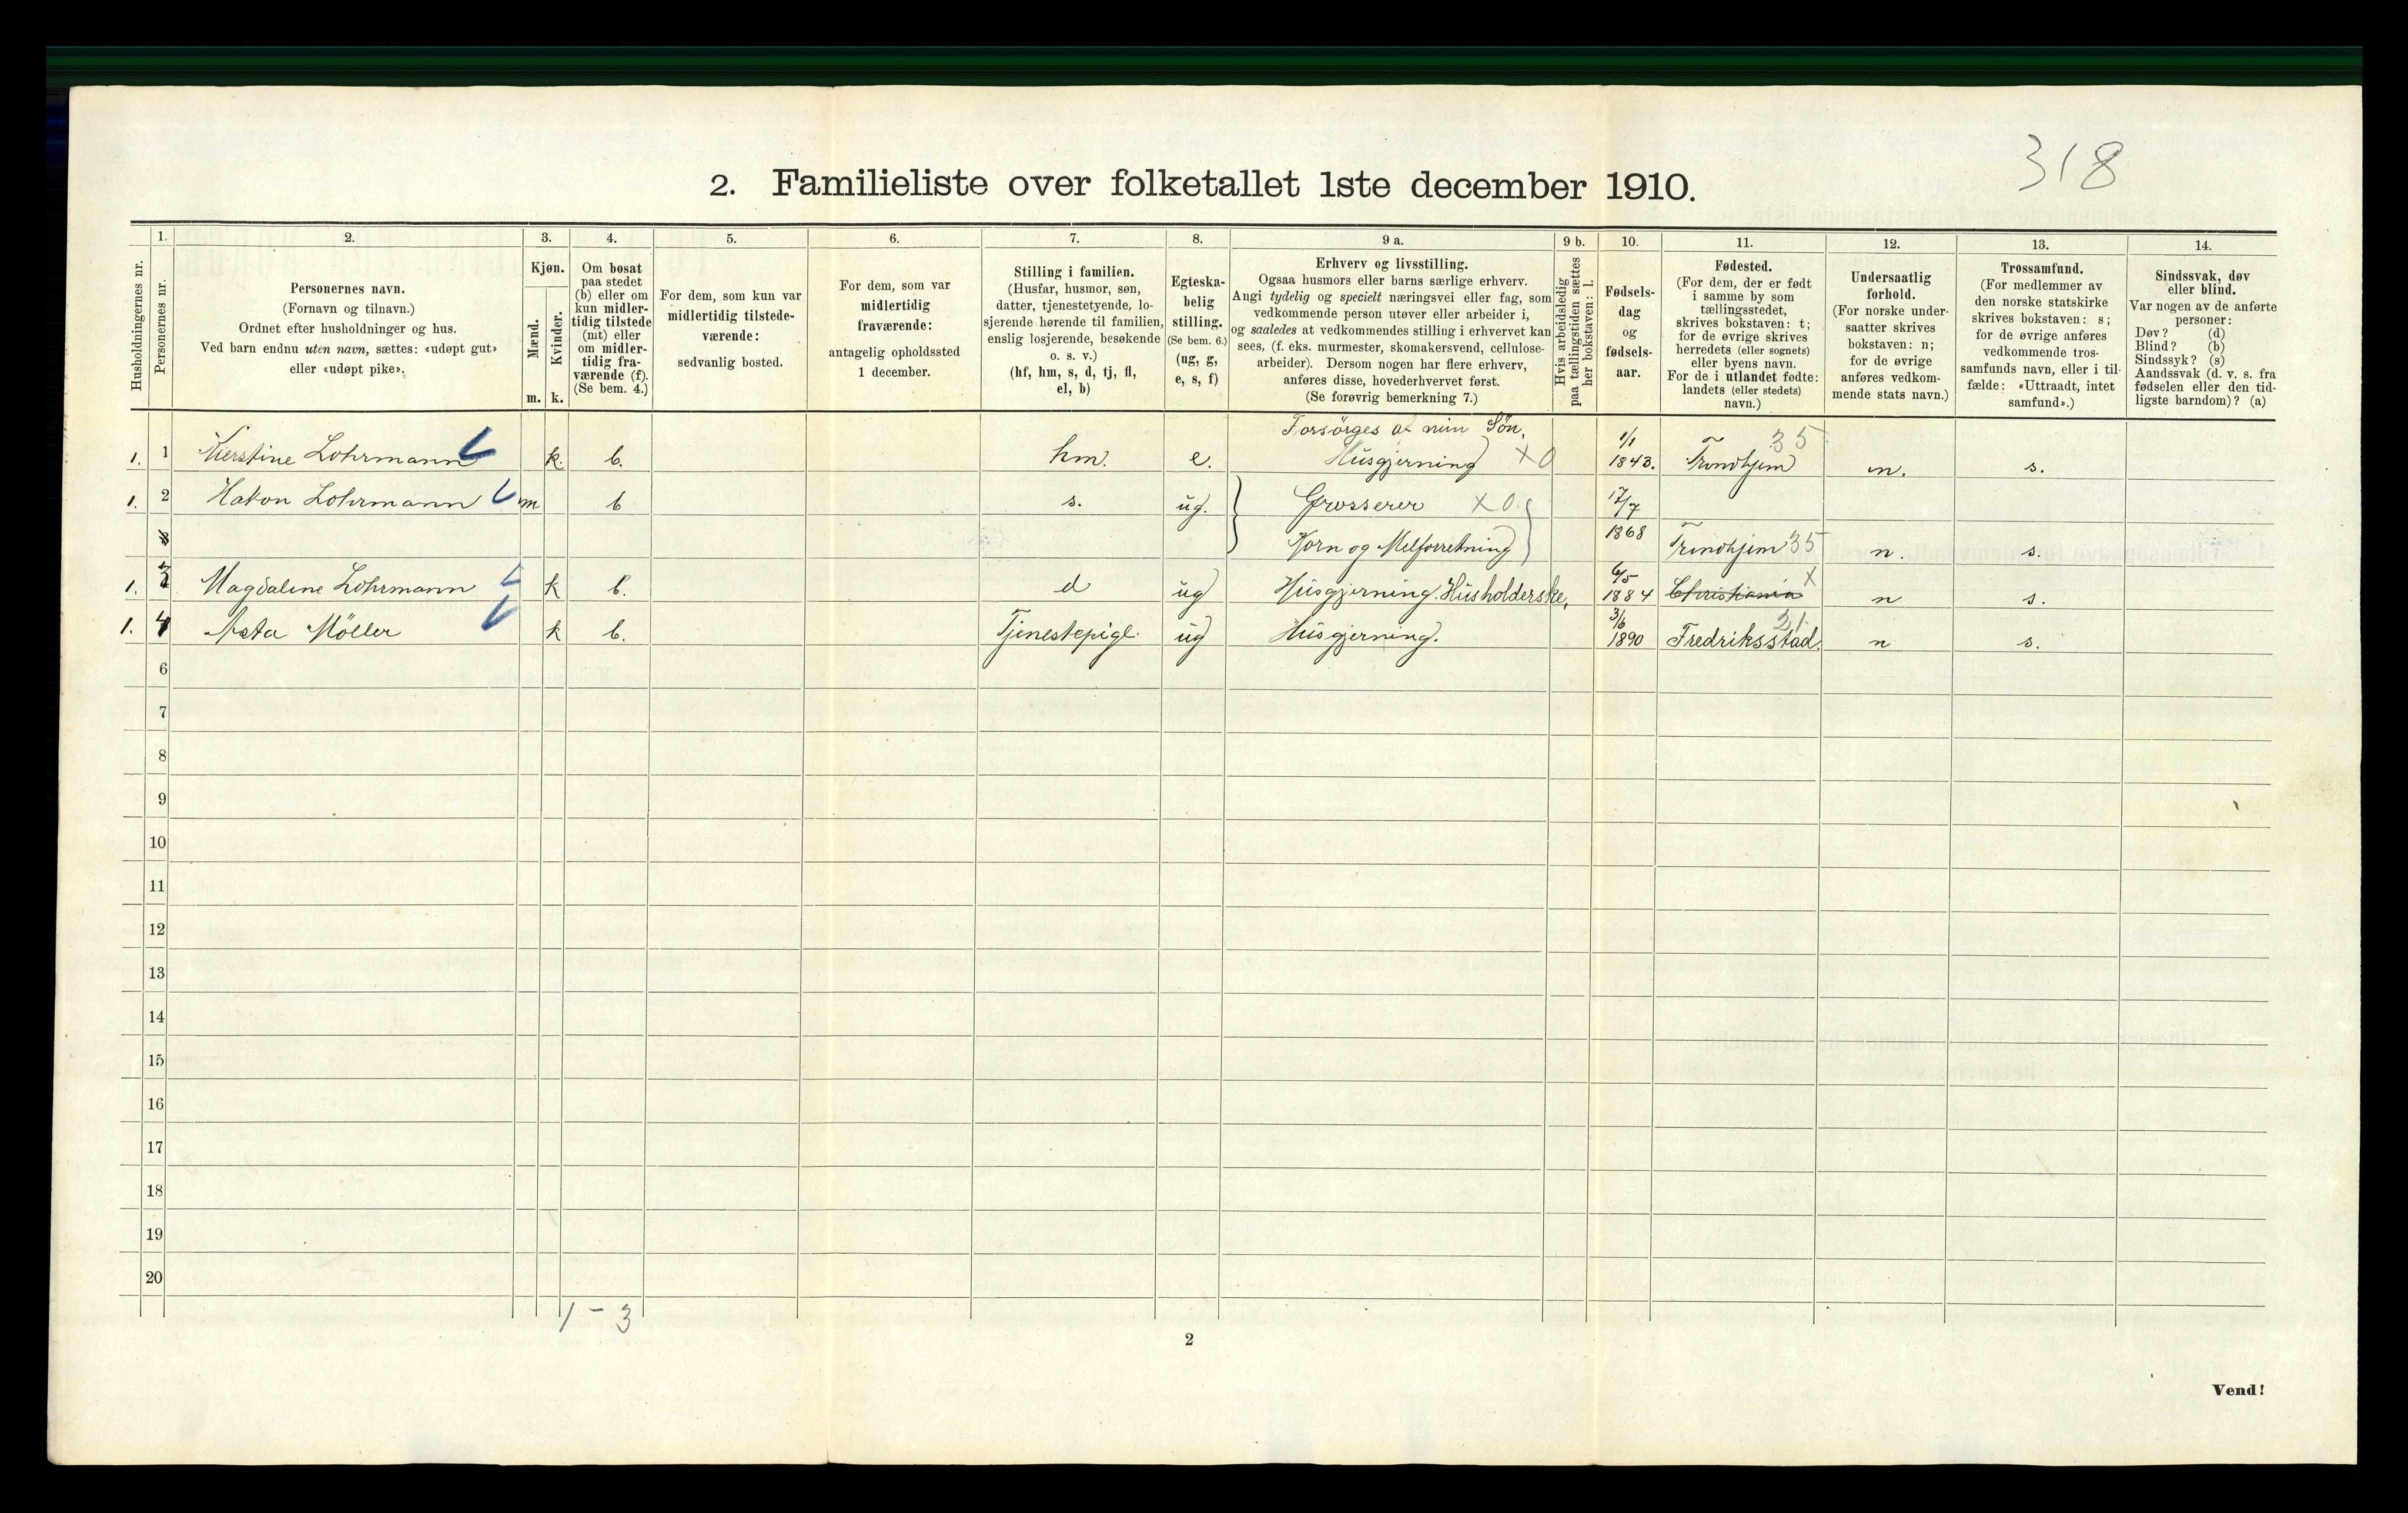 318
2. Familieliste over folketallet 1ste december 1910.
1. 2. 3. 4. 5. 6. 7. 8. 9 a. 9 b. 10. 11. 12. 13. 14.
Husholdningernes nr.
Personernes nr.
Personernes navn.
(Fornavn og tilnavn.)
Ordnet efter husholdninger og hus.
Ved barn endnu uten navn, sættes: «udøpt gut»
eller «udøpt pike».
Kjøn.
Mænd.
Kvinder.
m. k.
Om bosat
paa stedet
(b) eller om
kun midler-
tidig tilstede
(mt) eller
om midler-
tidig fra-
værende (f).
(Se bem. 4.)
For dem, som kun var
midlertidig tilstede-
værende:
sedvanlig bosted.
For dem, som var
midlertidig
fraværende:
antagelig opholdssted
1 december.
Stilling i familien.
(Husfar, husmor, søn,
datter, tjenestetyende, lo-
sjerende hørende til familien,
enslig losjerende, besøkende
o. s. v.)
(hf, hm, s, d, tj, fl,
el, b)
Egteska-
belig
stilling.
(Se bem. 6.)
(ug, g,
e, s, f)
Erhverv og livsstilling.
Ogsaa husmors eller barns særlige erhverv.
Angi tydelig og specielt næringsvei eller fag, som
vedkommende person utøver eller arbeider i,
og saaledes at vedkommendes stilling i erhvervet kan
sees, (f. eks. murmester, skomakersvend, cellulose-
arbeider). Dersom nogen har flere erhverv,
anføres disse, hovederhvervet først.
(Se forøvrig bemerkning 7.)
Hvis arbeidsledig
paa tællingstiden sættes
her bokstaven: l.
Fødsels-
dag
og
fødsels-
aar.
Fødested.
(For dem, der er født
i samme by som
tællingsstedet,
skrives bokstaven: t;
for de øvrige skrives
herredets (eller sognets)
eller byens navn.
For de i utlandet fødte:
landets (eller stedets)
navn.)
Undersaatlig
forhold.
(For norske under-
saatter skrives
bokstaven: n;
for de øvrige
anføres vedkom-
mende stats navn.)
Trossamfund.
(For medlemmer av
den norske statskirke
skrives bokstaven: s;
for de øvrige anføres
vedkommende tros-
samfunds navn, eller i til-
fælde: «Uttraadt, intet
samfund».)
Sindssvak, døv
eller blind.
Var nogen av de anførte
personer:
Døv? (d)
Blind? (b)
Sindssyk? (s)
Aandssvak (d. v. s. fra
fødselen eller den tid-
ligste barndom)? (a)
Forsörges af min Sön,
1. 1 Kirstine Lohrmann k. b. hm. e. Husgjerning X0 1/1 1843. Trondhjem 35 n. s.
1. 2 Hakon Lohrmann m b s. ug. Grosserer X0. 17/7
3 Korn og Melforretning 1868 Trondhjem 35 n. s.
1. 3 Magdalene Lohrmann k b. d ug Husgjerning. Husholderske, 6/5 1884 Christiania X n s.
1. 4 Asta Möller k b. Tjenestepige ug Husgjerning. 3/6 1890 Fredriksstad. 21 n s.
6
7
8
9
10
11
12
13
14
15
16
17
18
19
20
1 - 3
2
Vend!